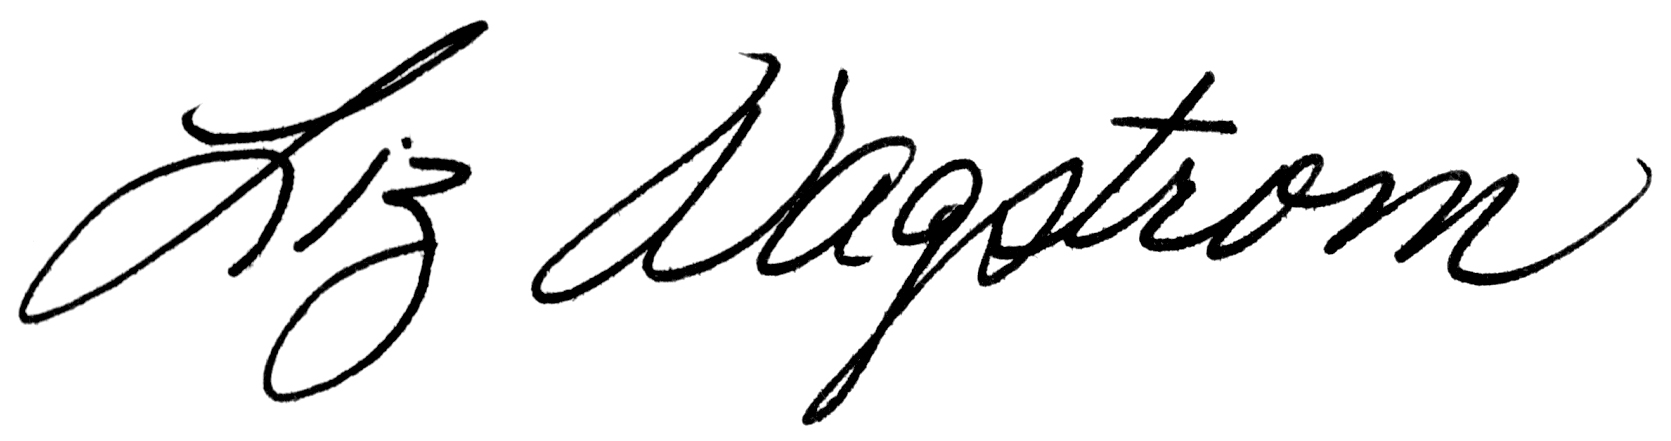 Liz Wagstrom